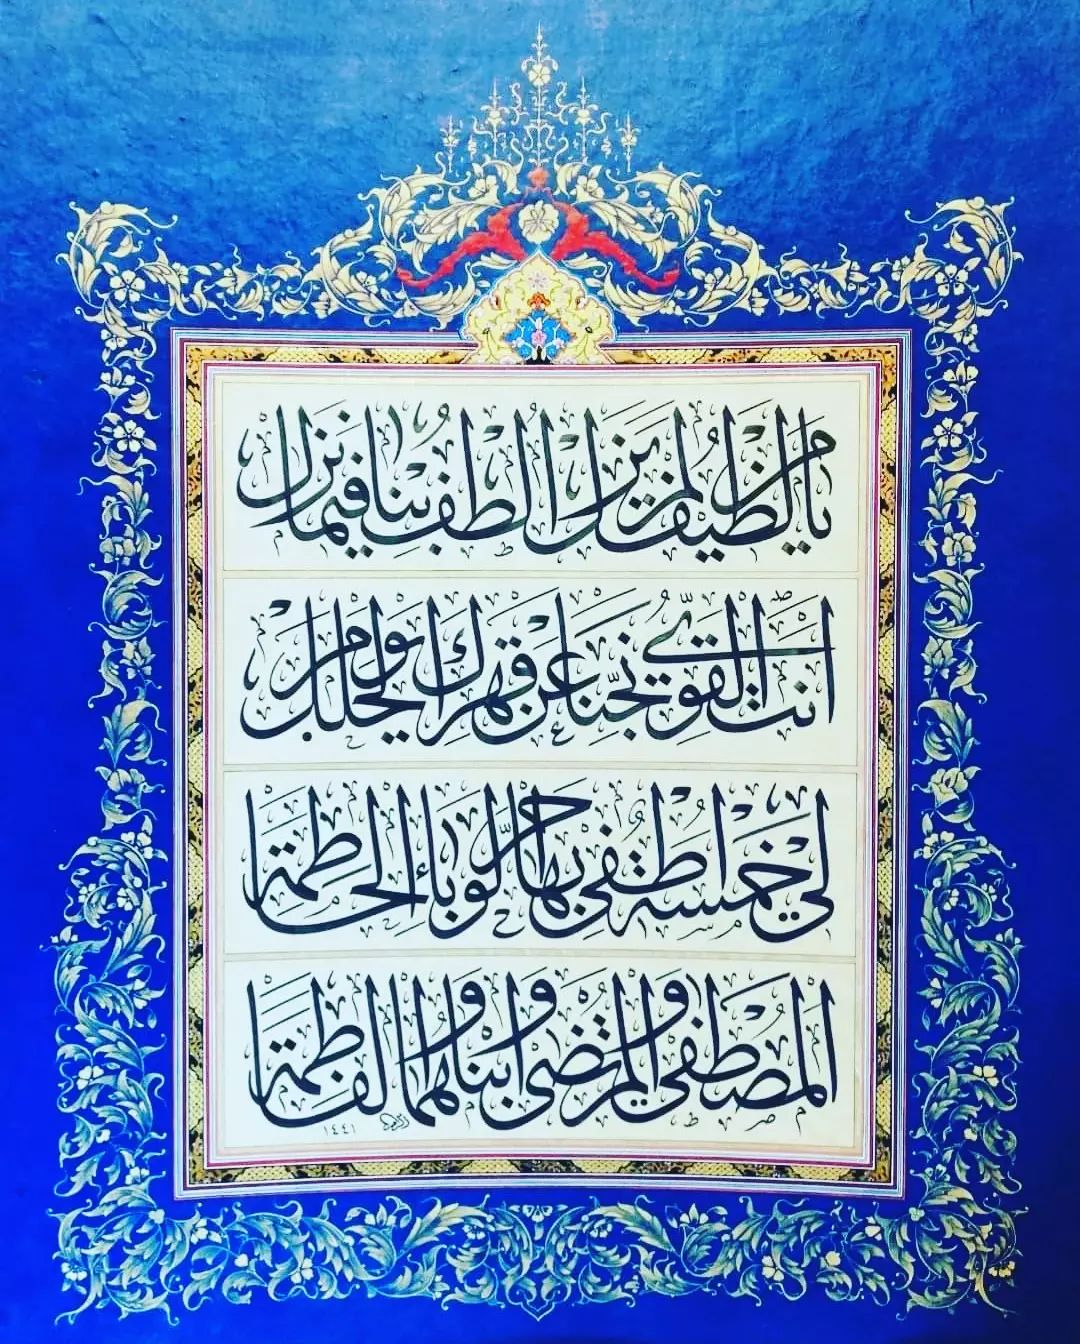 يا من لطيف لم يزل الطف بنا فيما نزل
انت القوي نجنا عن قهرك يوم الخلل
لي خمسة اطفي بها حر الوباء الحاطمة
المصطفى والمرتضى وابناهما والفاطمة
١٤٤١